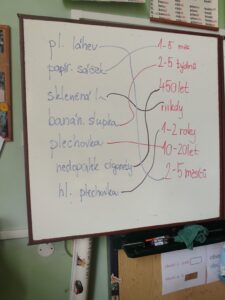 pl. láhev
papír. sáček
skleněná l.
banán. slupka
plechovka
nedopalek cigarety
hl. plechovka
1-5 měs
2-5 týdnů
450 let
nikdy
1-2 roky
10-20 let
2-5 měsíců